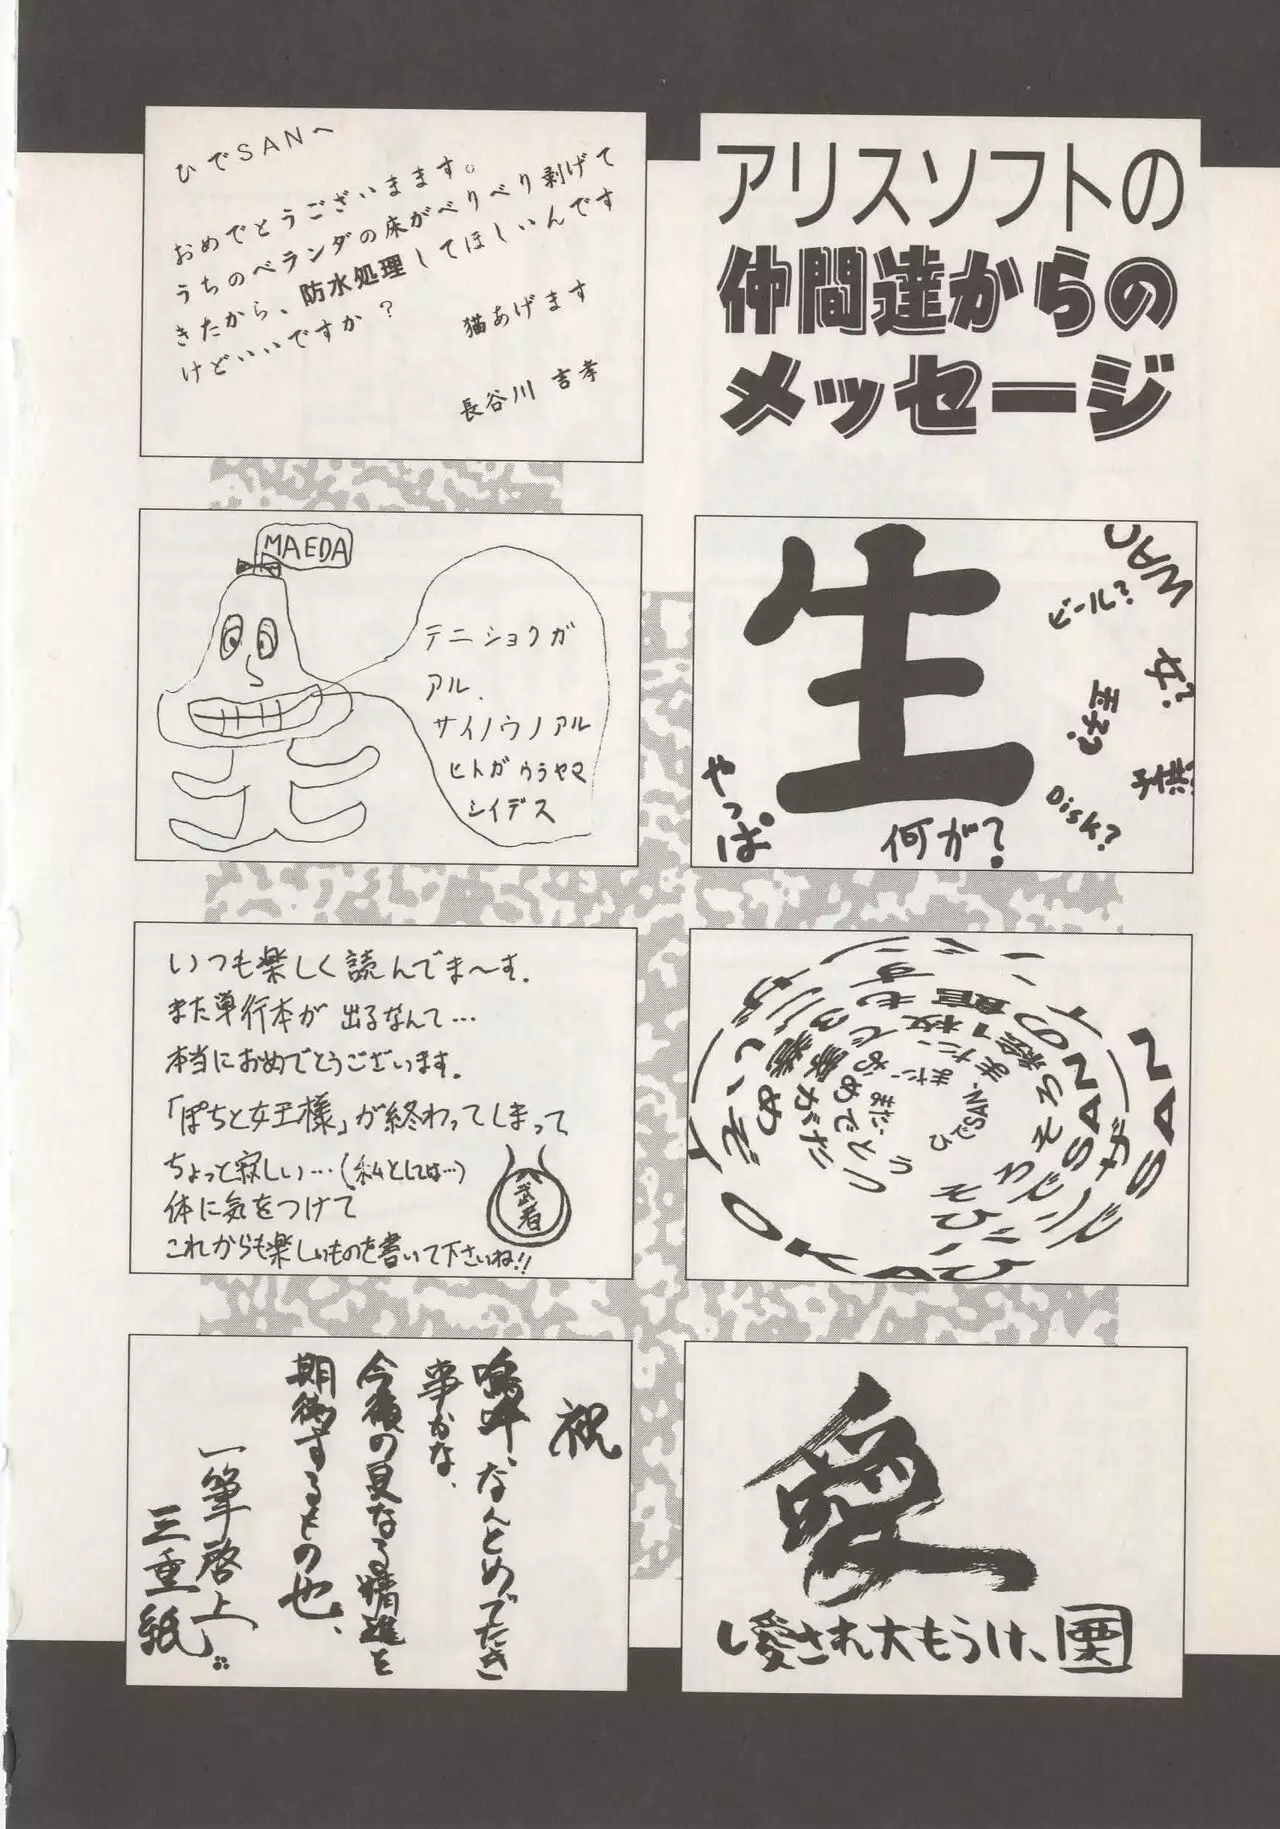 アリスソフトの
仲間達からの
メッセージ
ひでSANへ
おめでとうございまます。
うちのベランダの床がべりべり剥げて
きたから、防水処理してほしいんです
けどいいですか？
猫あげます
長谷川 吉孝
生
WAO
ビール？
女？
王子？
Disk？
やっぱ
何が？
MAEDA
テニショクガ
アル.
サイノウノアル
ヒトガウラヤマ
シイデス
ひでSAN、
まだ、まだ、まだ、
いつも楽しく読んでま〜す.
また単行本が出るなんて…
本当におめでとうございます.
「ぽちと女王様」が終わってしまって
ちょっと寂しい…(私としては…)
体に気をつけて
これからも楽しいものを書いて下さいね!!
武者
愛
し愛され大もうけ、
祝
嗚呼、なんとめでたき
事かな、
今後の更なる精進を
期待するもの也、
一筆啓上
三重紙